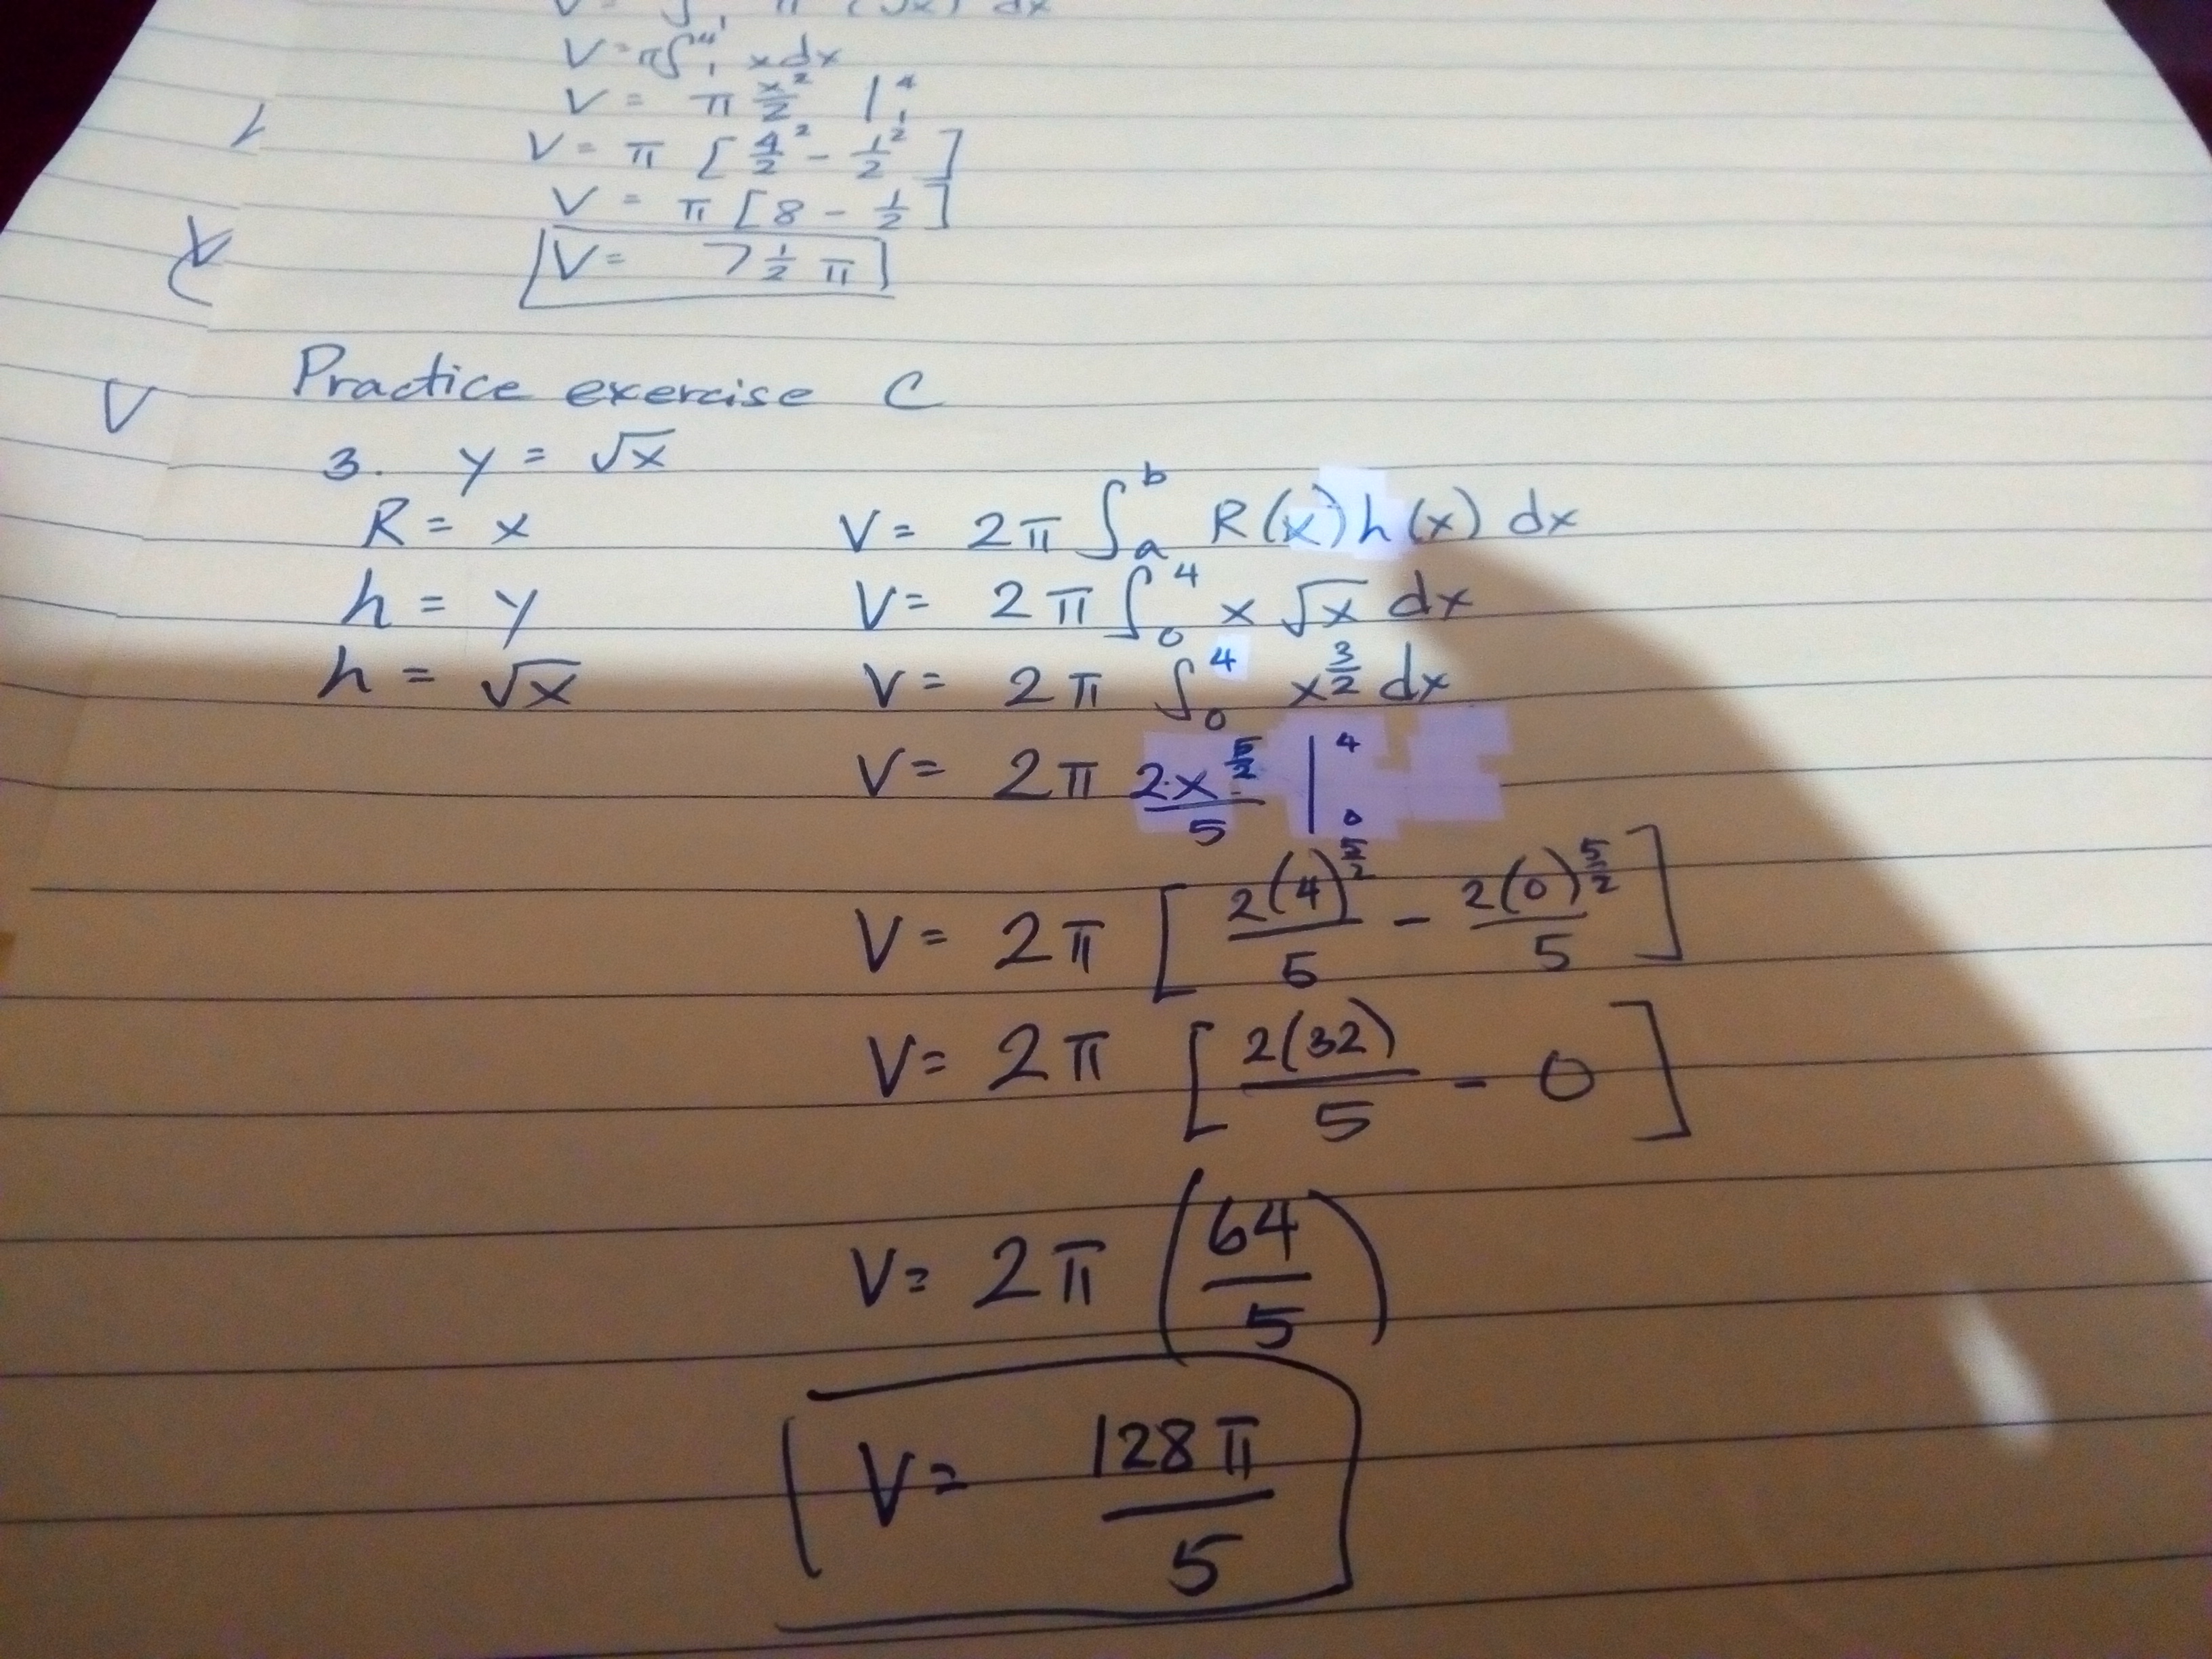 V = π∫⁴₁ x dx
V = π x²/2 |⁴₁
V = π [ 4²/2 - 1²/2 ]
V = π [ 8 - 1/2 ]
V = 7 1/2 π
Practice exercise C
3. y = √x
R = x V = 2π ∫ₐᵇ R(x) h(x) dx
h = y V = 2π ∫₀⁴ x √x dx
h = √x V = 2π ∫₀⁴ x^(3/2) dx
V = 2π 2·x^(5/2)/5 |⁴₀
V = 2π [ 2(4)^(5/2)/5 - 2(0)^(5/2)/5 ]
V = 2π [ 2(32)/5 - 0 ]
V = 2π (64/5)
V = 128π/5